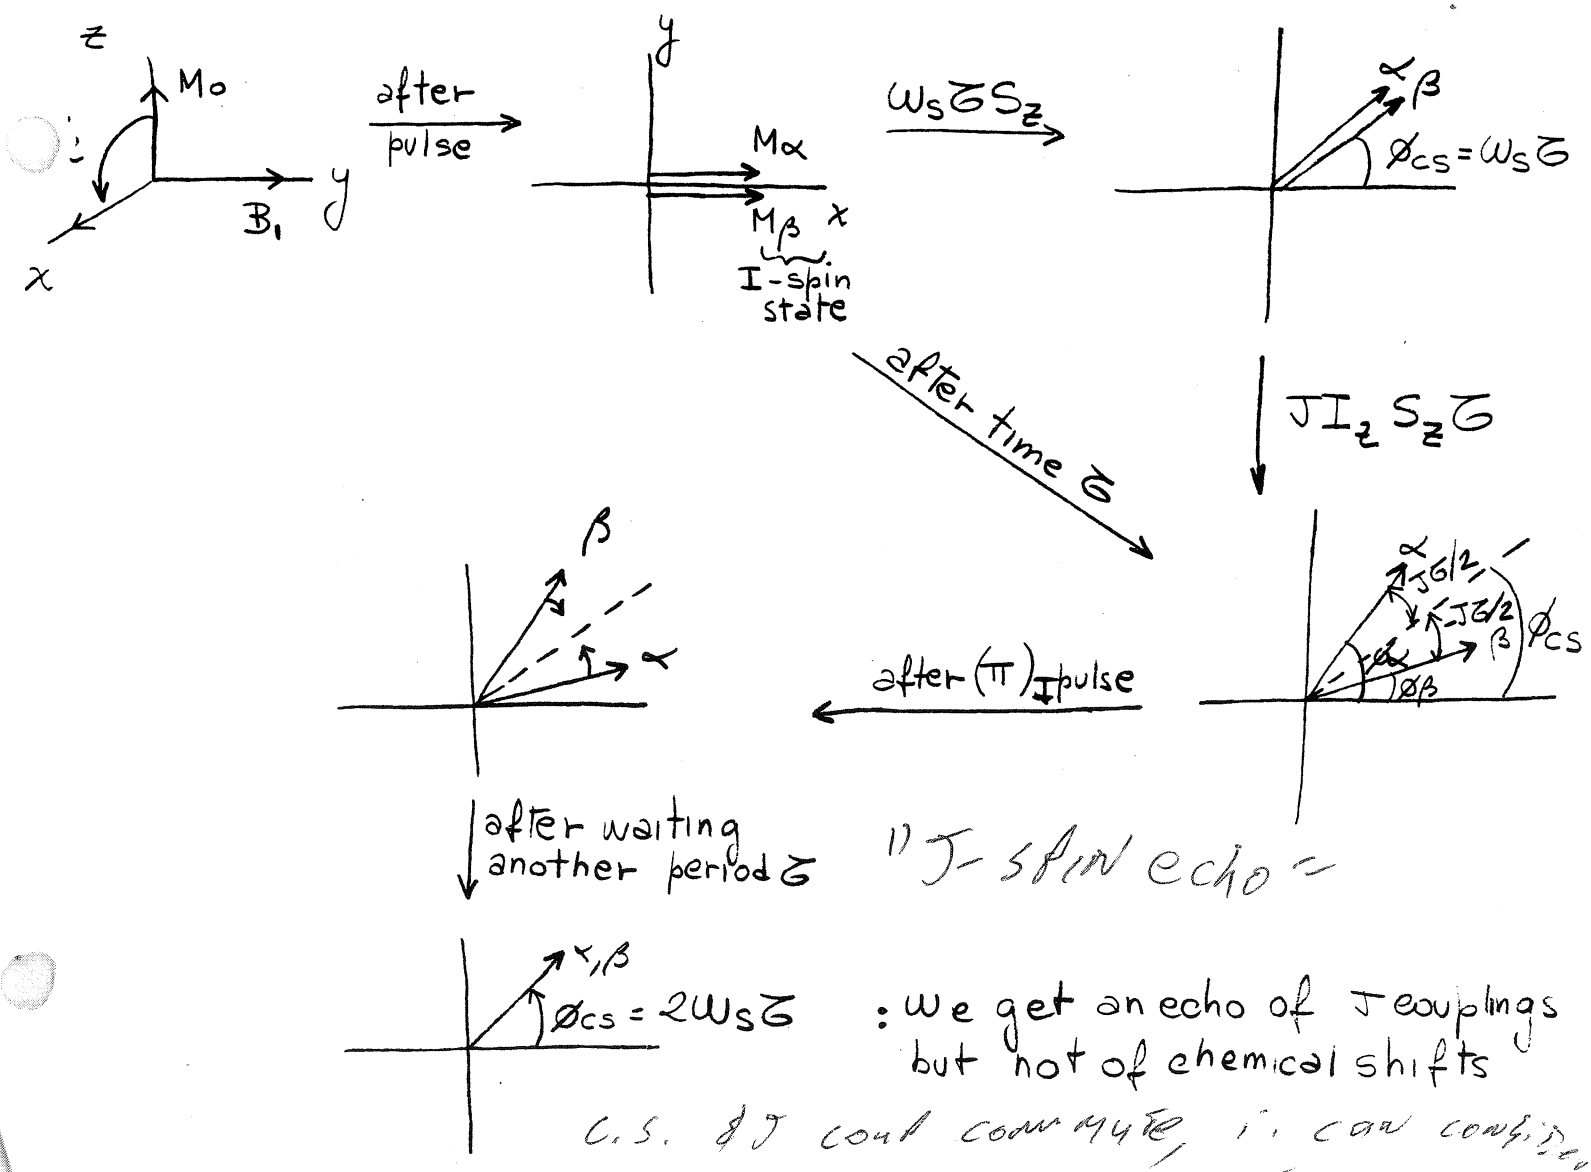 z
M₀
y
B₁
x
after
pulse
y
Mα
Mβ
x
I-spin
state
ω_S τ S_z
α
β
φ_CS = ω_S τ
after time τ
J I_z S_z τ
α
Jτ/2
-Jτ/2
β
φα
φβ
φ_CS
after (π)_I pulse
β
α
after waiting
another period τ
"J-spin echo"
α,β
φ_CS = 2ω_S τ
: we get an echo of J couplings
but not of chemical shifts
c.s. & J coup commute, i. can